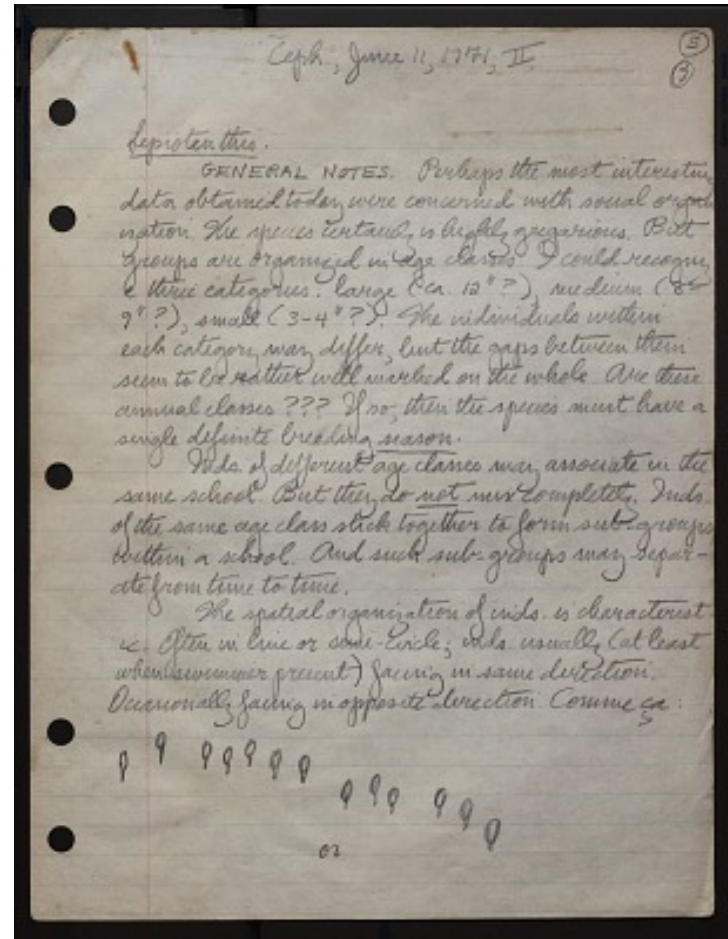 Ceph., June 11, 1971, II.
5
3
Sepioteuthis.
GENERAL NOTES. Perhaps the most interesting
data obtained today were concerned with social organ-
ization. The species certainly is highly gregarious. But
groups are organized in age classes. I could recogniz-
e three categories: large (ca. 12"?), medium (8-
9"?), small (3-4"?). The individuals within
each category may differ, but the gaps between them
seem to be rather well marked on the whole. Are these
annual classes ??? If so, then the species must have a
single definite breeding season.
Inds. of different age classes may associate in the
same school. But they do not mix completely. Inds.
of the same age class stick together to form sub-groups
within a school. And such sub-groups may separ-
ate from time to time.
The spatial organization of inds. is characterist-
ic. Often in line or semi-circle; inds. usually (at least
when swimmer present) facing in same direction.
Occasionally facing in opposite direction. Comme ça:
or